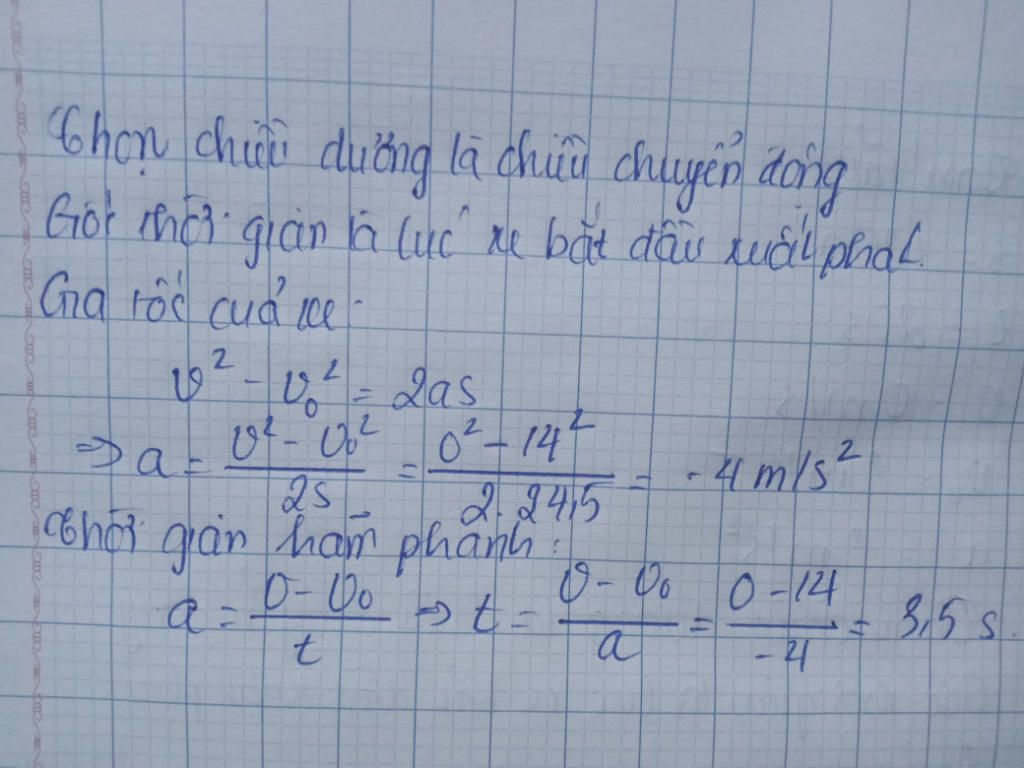 Chọn chiều dương là chiều chuyển động
Gốc thời gian là lúc xe bắt đầu xuất phát.
Gia tốc của xe:
v² - v₀² = 2as
⇒ a = (v² - v₀²)/(2s) = (0² - 14²)/(2.24,5) = -4 m/s²
Thời gian hãm phanh:
a = (v - v₀)/t ⇒ t = (v - v₀)/a = (0 - 14)/(-4) = 3,5 s.